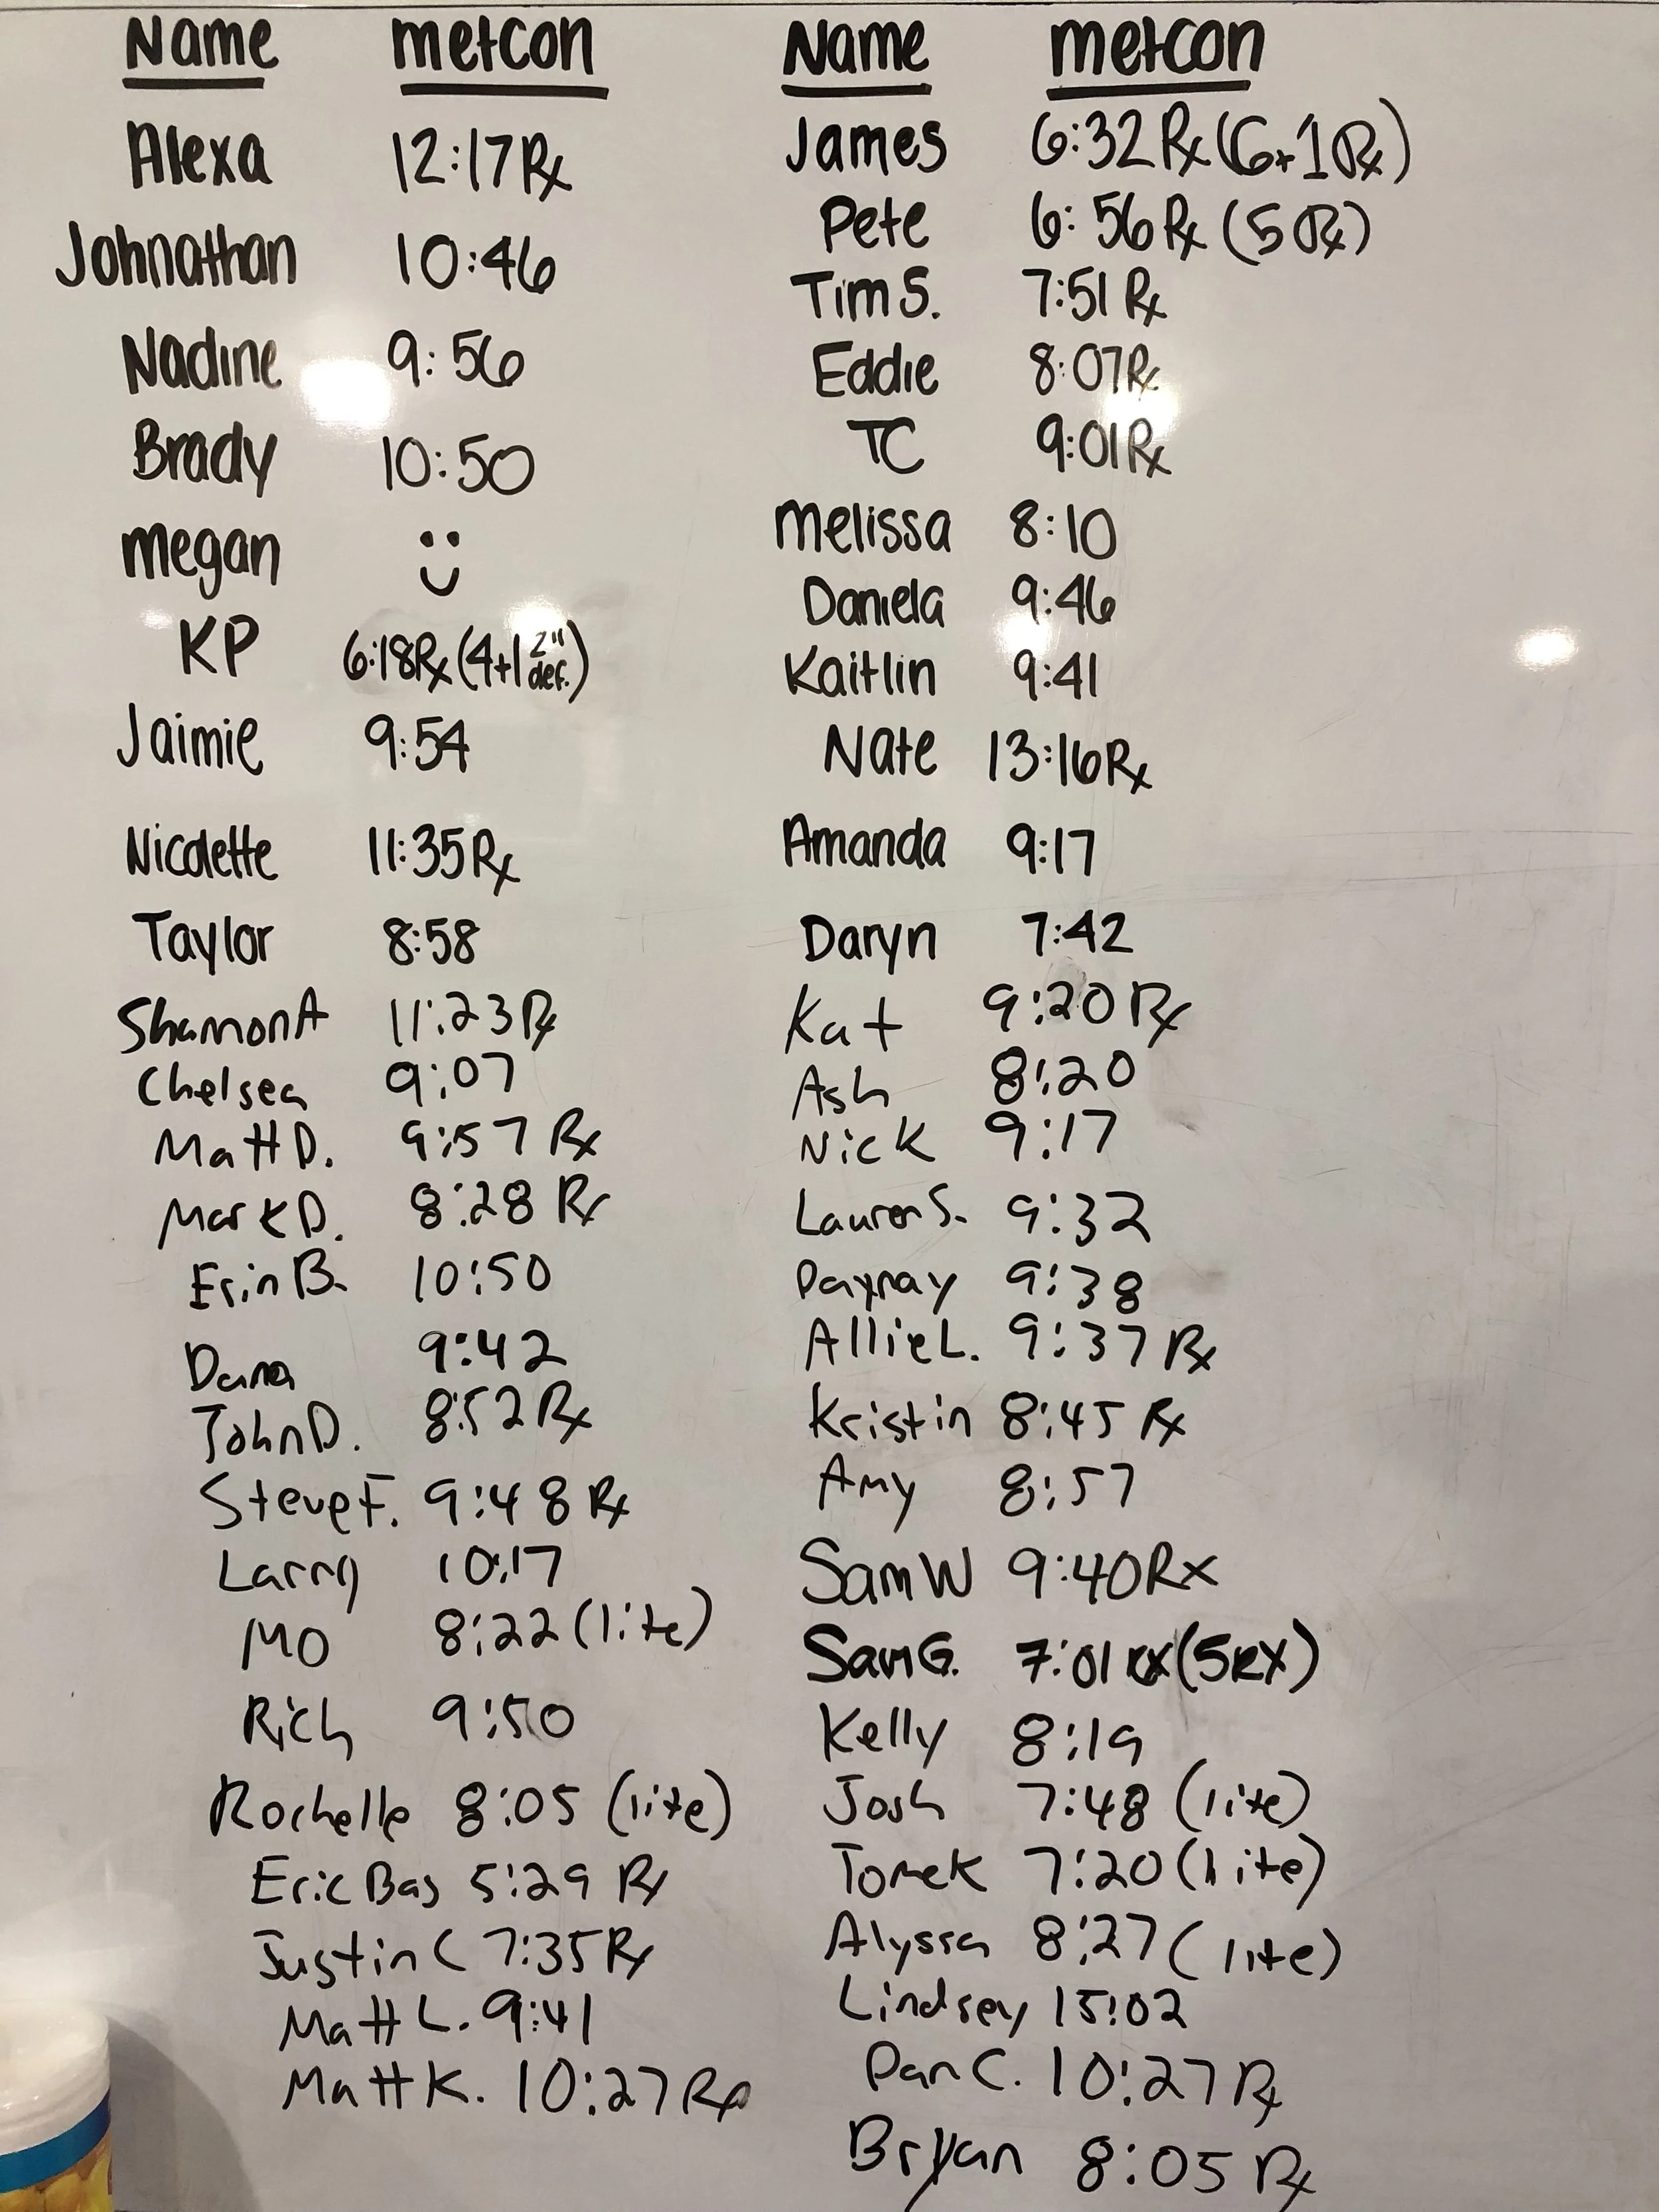 Name metcon
Alexa 12:17 Rx
Johnathan 10:46
Nadine 9:56
Brady 10:50
megan
KP 6:18 Rx (4+1 2" def.)
Jaimie 9:54
Nicolette 11:35 Rx
Taylor 8:58
Shannon A 11:23 Rx
Chelsea 9:07
Matt D. 9:57 Rx
Mark D. 8:28 Rx
Erin B. 10:50
Dana 9:42
John D. 8:52 Rx
Steve F. 9:48 Rx
Larry 10:17
MO 8:22 (lite)
Rich 9:50
Rochelle 8:05 (lite)
Eric Bas 5:29 Rx
Justin C 7:35 Rx
Matt L. 9:41
Matt K. 10:27 Rx
Name metcon
James 6:32 Rx (6+1 Rx)
Pete 6:56 Rx (5 Rx)
Tim S. 7:51 Rx
Eddie 8:07 Rx
TC 9:01 Rx
Melissa 8:10
Daniela 9:46
Kaitlin 9:41
Nate 13:16 Rx
Amanda 9:17
Daryn 7:42
Kat 9:20 Rx
Ash 8:20
Nick 9:17
Lauren S. 9:32
9:38
Allie L. 9:37 Rx
Kristin 8:45 Rx
Amy 8:57
Sam W 9:40 Rx
Sam G. 7:01 RX (5 RX)
Kelly 8:19
Josh 7:48 (lite)
Tomek 7:20 (lite)
Alyssa 8:27 (lite)
Lindsey 15:02
Dan C. 10:27 Rx
Bryan 8:05 Rx